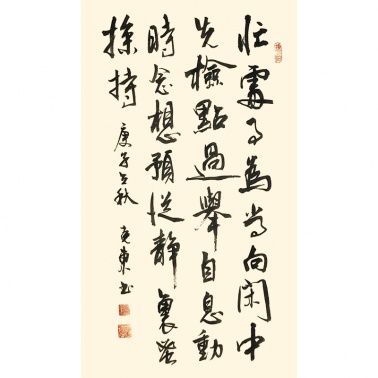 忙處事為常向閑中
先檢點過舉自息動
時念想預從靜裏
操持
庚子立秋 克東書